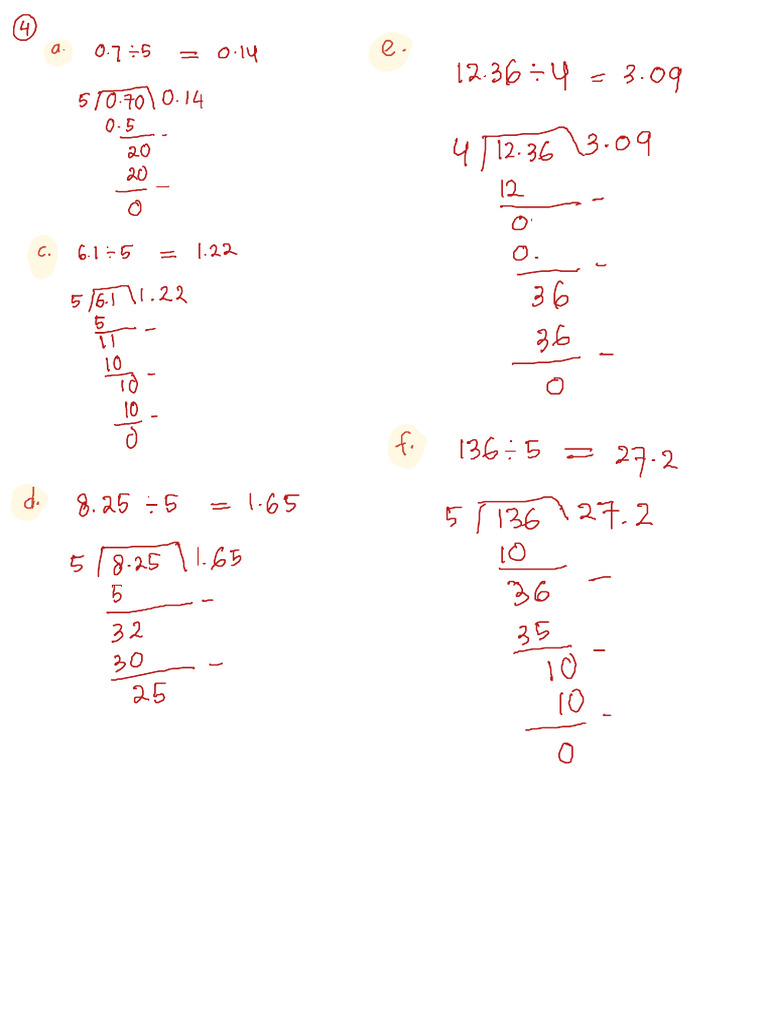 4
a. 0.7÷5 = 0.14
5 0.70 0.14
0.5 -
20
20 -
0
c. 6.1÷5 = 1.22
5 6.1 1.22
5 -
11
10 -
10
10 -
0
d. 8.25÷5 = 1.65
5 8.25 1.65
5 -
32
30 -
25
e.
12.36÷4 = 3.09
4 12.36 3.09
12 -
0.
0. -
36
36 -
0
f. 136÷5 = 27.2
5 136 27.2
10 -
36
35 -
10
10 -
0